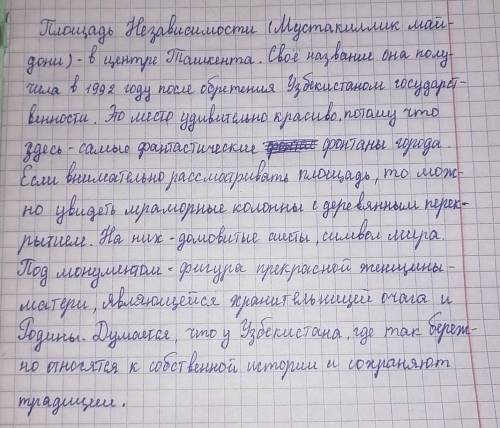 Площадь Независимости (Мустакиллик май-
дони) - в центре Ташкента. Своё название она полу-
чила в 1992 году после обретения Узбекистаном государст-
венности. Это место удивительно красиво, потому что
здесь - самые фантастические фонтаны города.
Если внимательно рассматривать площадь, то мож-
но увидеть мраморные колонны с деревянным перек-
рытием. На них - домовитые аисты, символ мира.
Под монументом - фигура прекрасной женщины -
матери, являющейся хранительницей очага и
Родины. Думается, что у Узбекистана, где так береж-
но относятся к собственной истории и сохраняют
традиции.